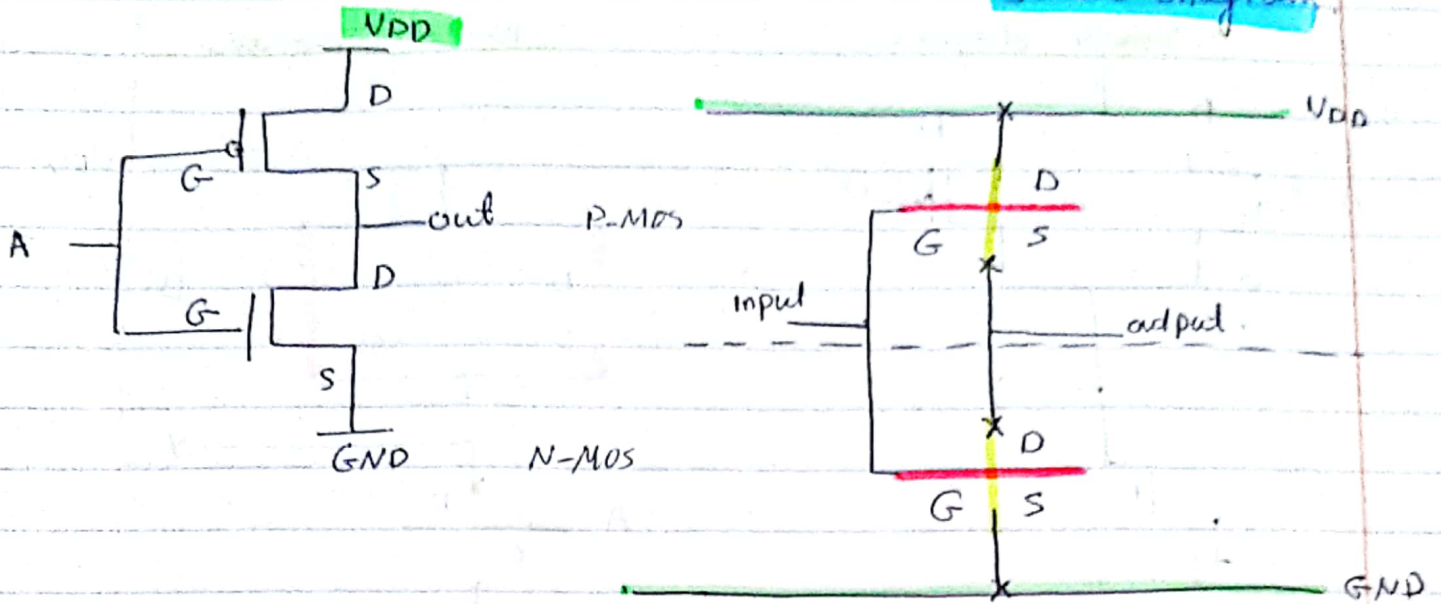 VDD
D
G
S
out
P-MOS
A
D
G
S
GND
N-MOS
VDD
D
G
S
input
output
D
G
S
GND